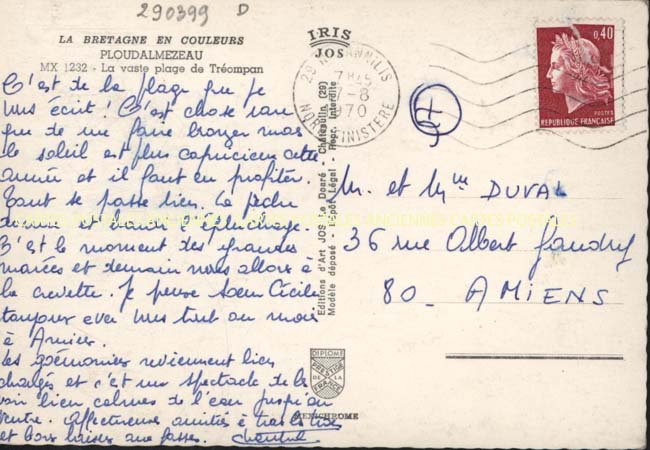 290399 D
LA BRETAGNE EN COULEURS
PLOUDALMEZEAU
MX 1232 - La vaste plage de Tréompan
IRIS
JOS
C'est de la plage que je
vous écrit ! C'est chose rare
que de me faire bronzer mais
le soleil est plus capricieux cette
année et il faut en profiter.
Tout se passe bien. La pêche
donne et l'épluchage.
C'est le moment des grandes
marées et demain nous allons à
la crevette. Je pense Soeur Cécile
toujours avec vous tout au moins
à Amiens.
Les goémoniers reviennent bien
chargés et c'est un spectacle de les
voir bien calmes de l'eau jusqu'au
ventre. Affectueuses amitiés à
et bons baisers aux
Chantal
Editions d'Art JOS Le Doaré - Châteaulin (29)
Modèle déposé - Dépôt Légal - Repr. Interdite
29
7-8
1970
NORD FINISTERE
0,40
POSTES
REPUBLIQUE FRANÇAISE
M. et Mme DUVAL
36 rue Albert Gaudry
80 - AMIENS
DIPLOME
PRESTIGE
DE LA
FRANCE
MEXICHROME